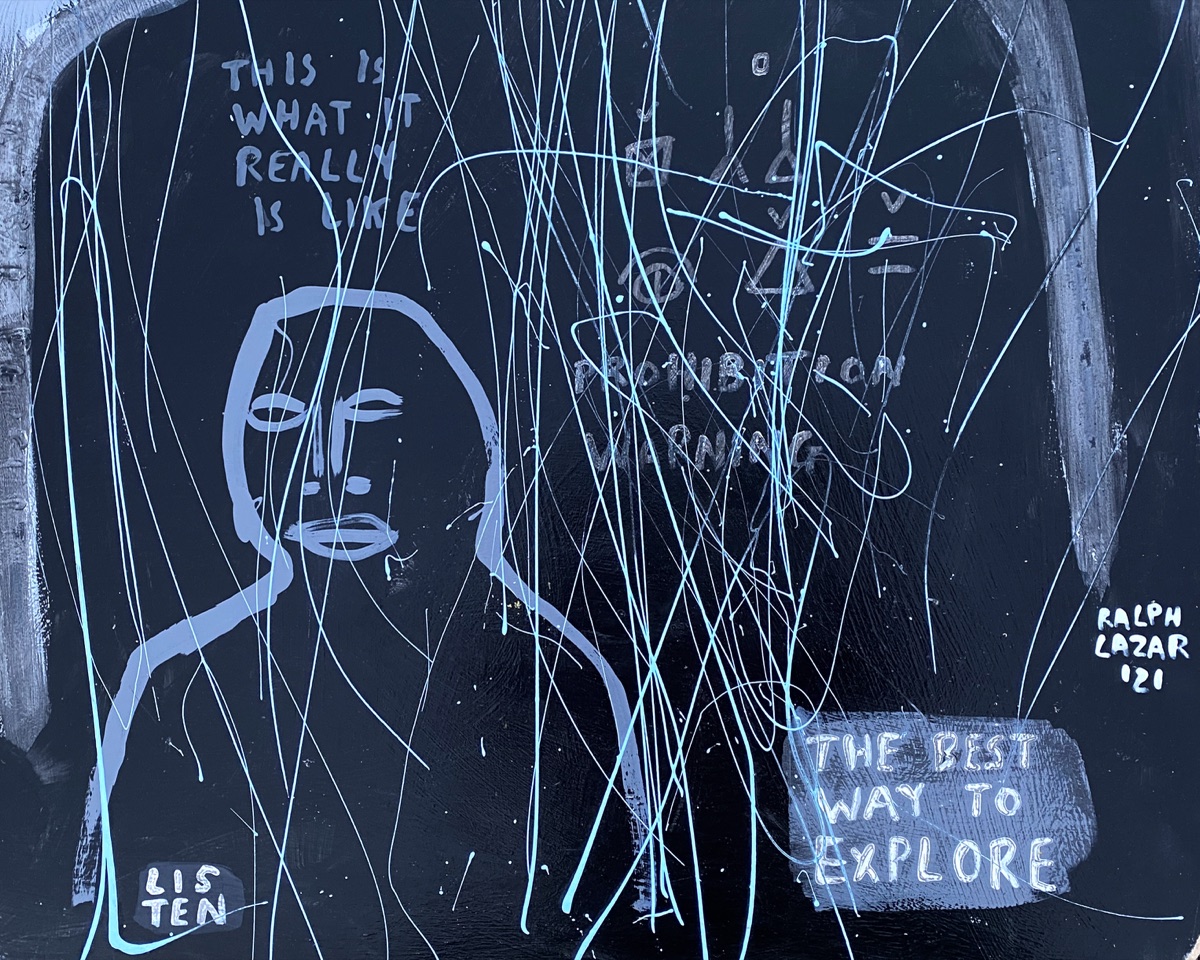 THIS IS
WHAT IT
REALLY
IS LIKE
PROHIBITION
WARNING
RALPH
LAZAR
'21
THE BEST
WAY TO
EXPLORE
LIS
TEN